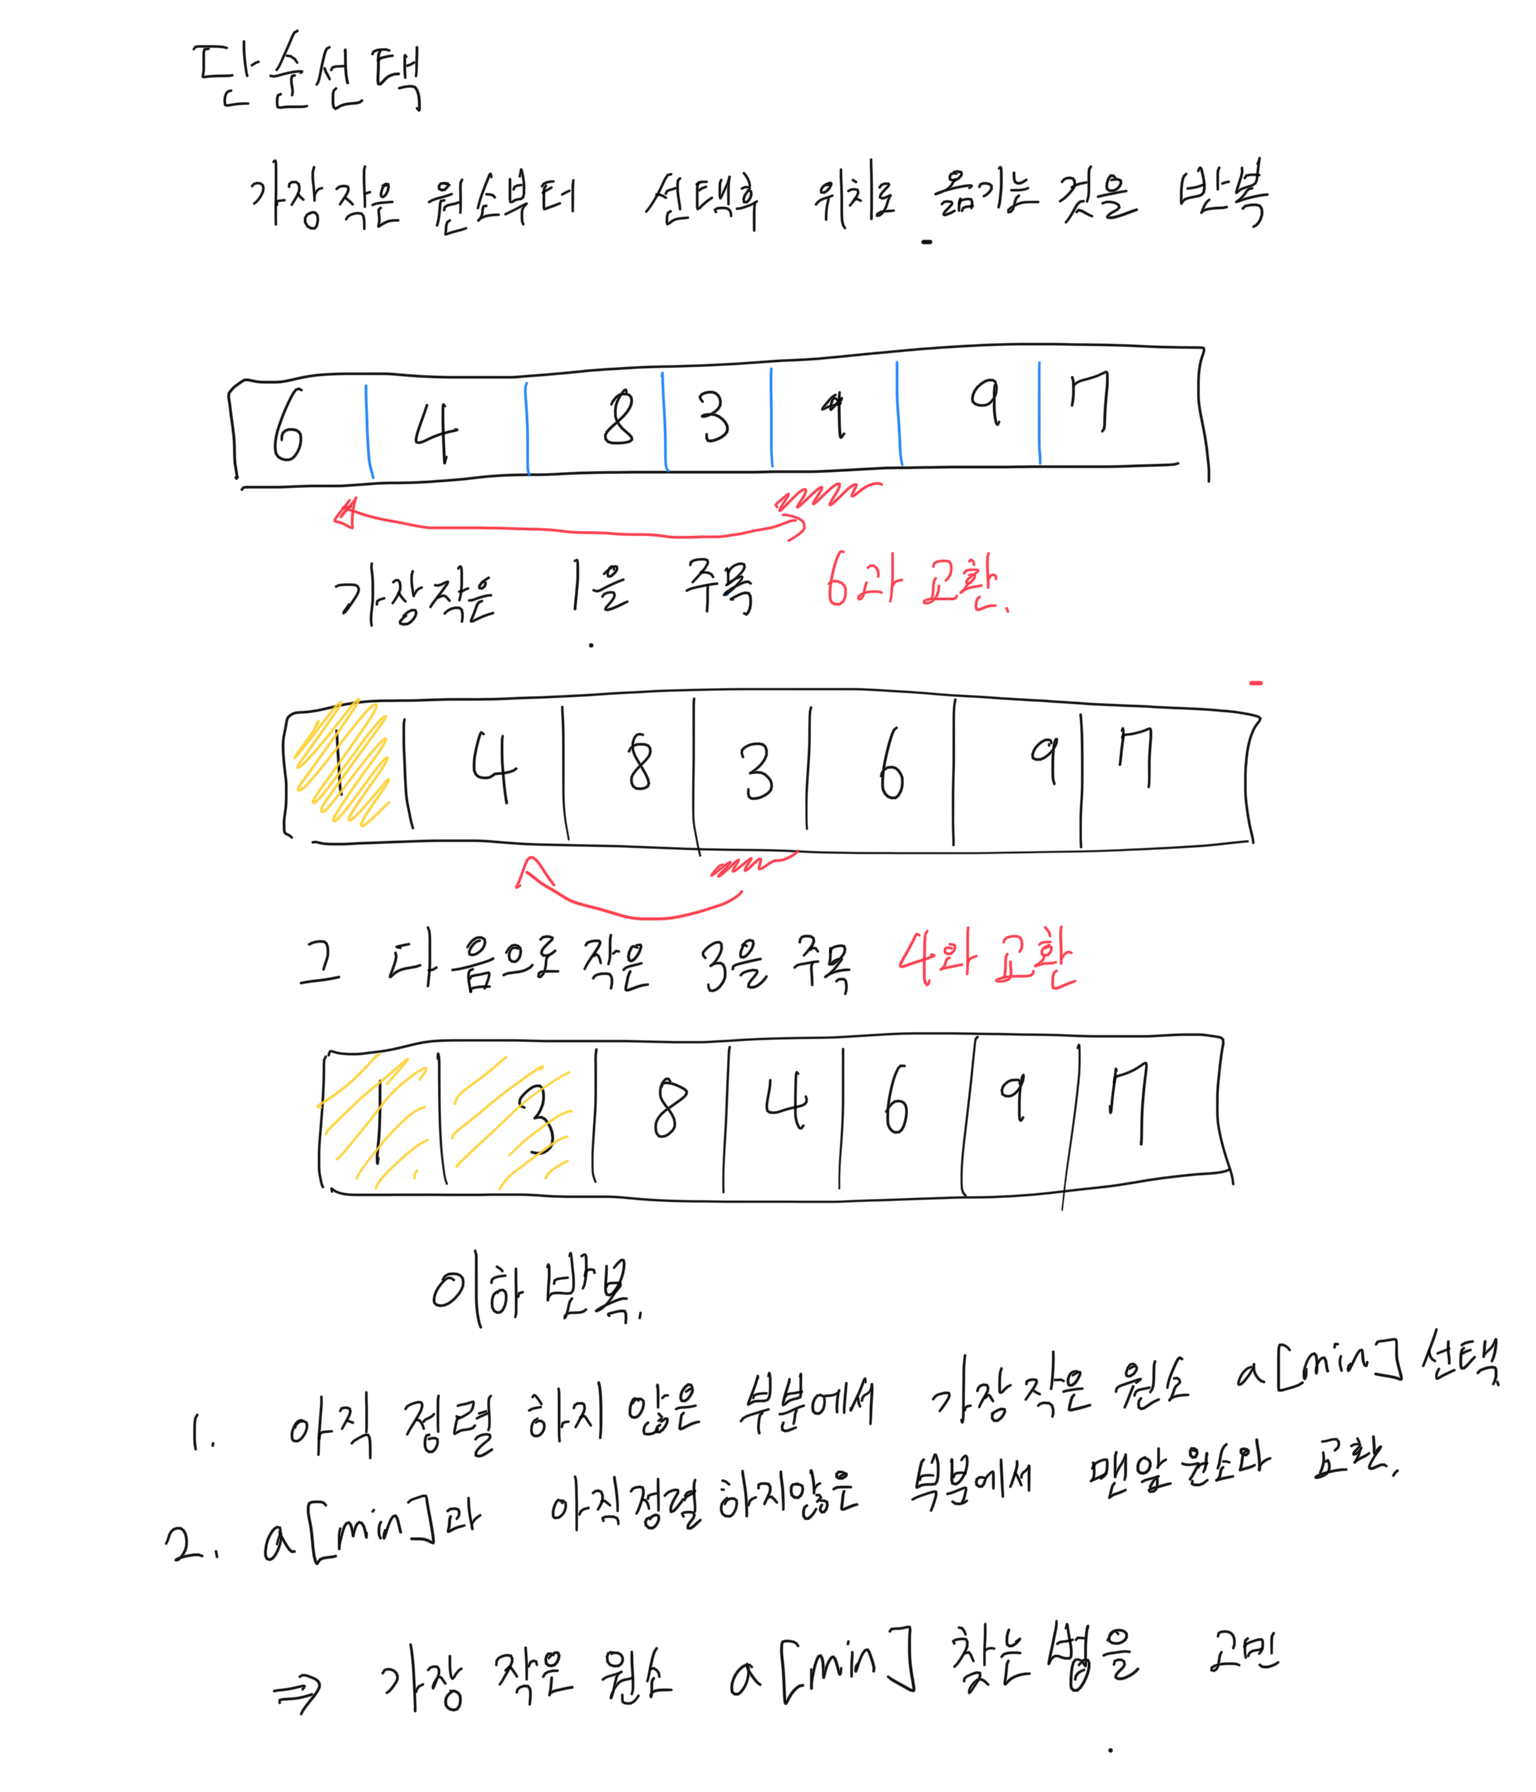 단순선택
가장작은 원소부터 선택후 위치로 옮기는 것을 반복
6 4 8 3 1 9 7
가장작은 1을 주목 6과 교환.
1 4 8 3 6 9 7
그 다음으로 작은 3을 주목 4와 교환
1 3 8 4 6 9 7
이하 반복.
1. 아직 정렬 하지 않은 부분에서 가장작은 원소 a[min] 선택
2. a[min]과 아직정렬하지않은 부분에서 맨앞원소와 교환.
⇒ 가장 작은 원소 a[min] 찾는법을 고민